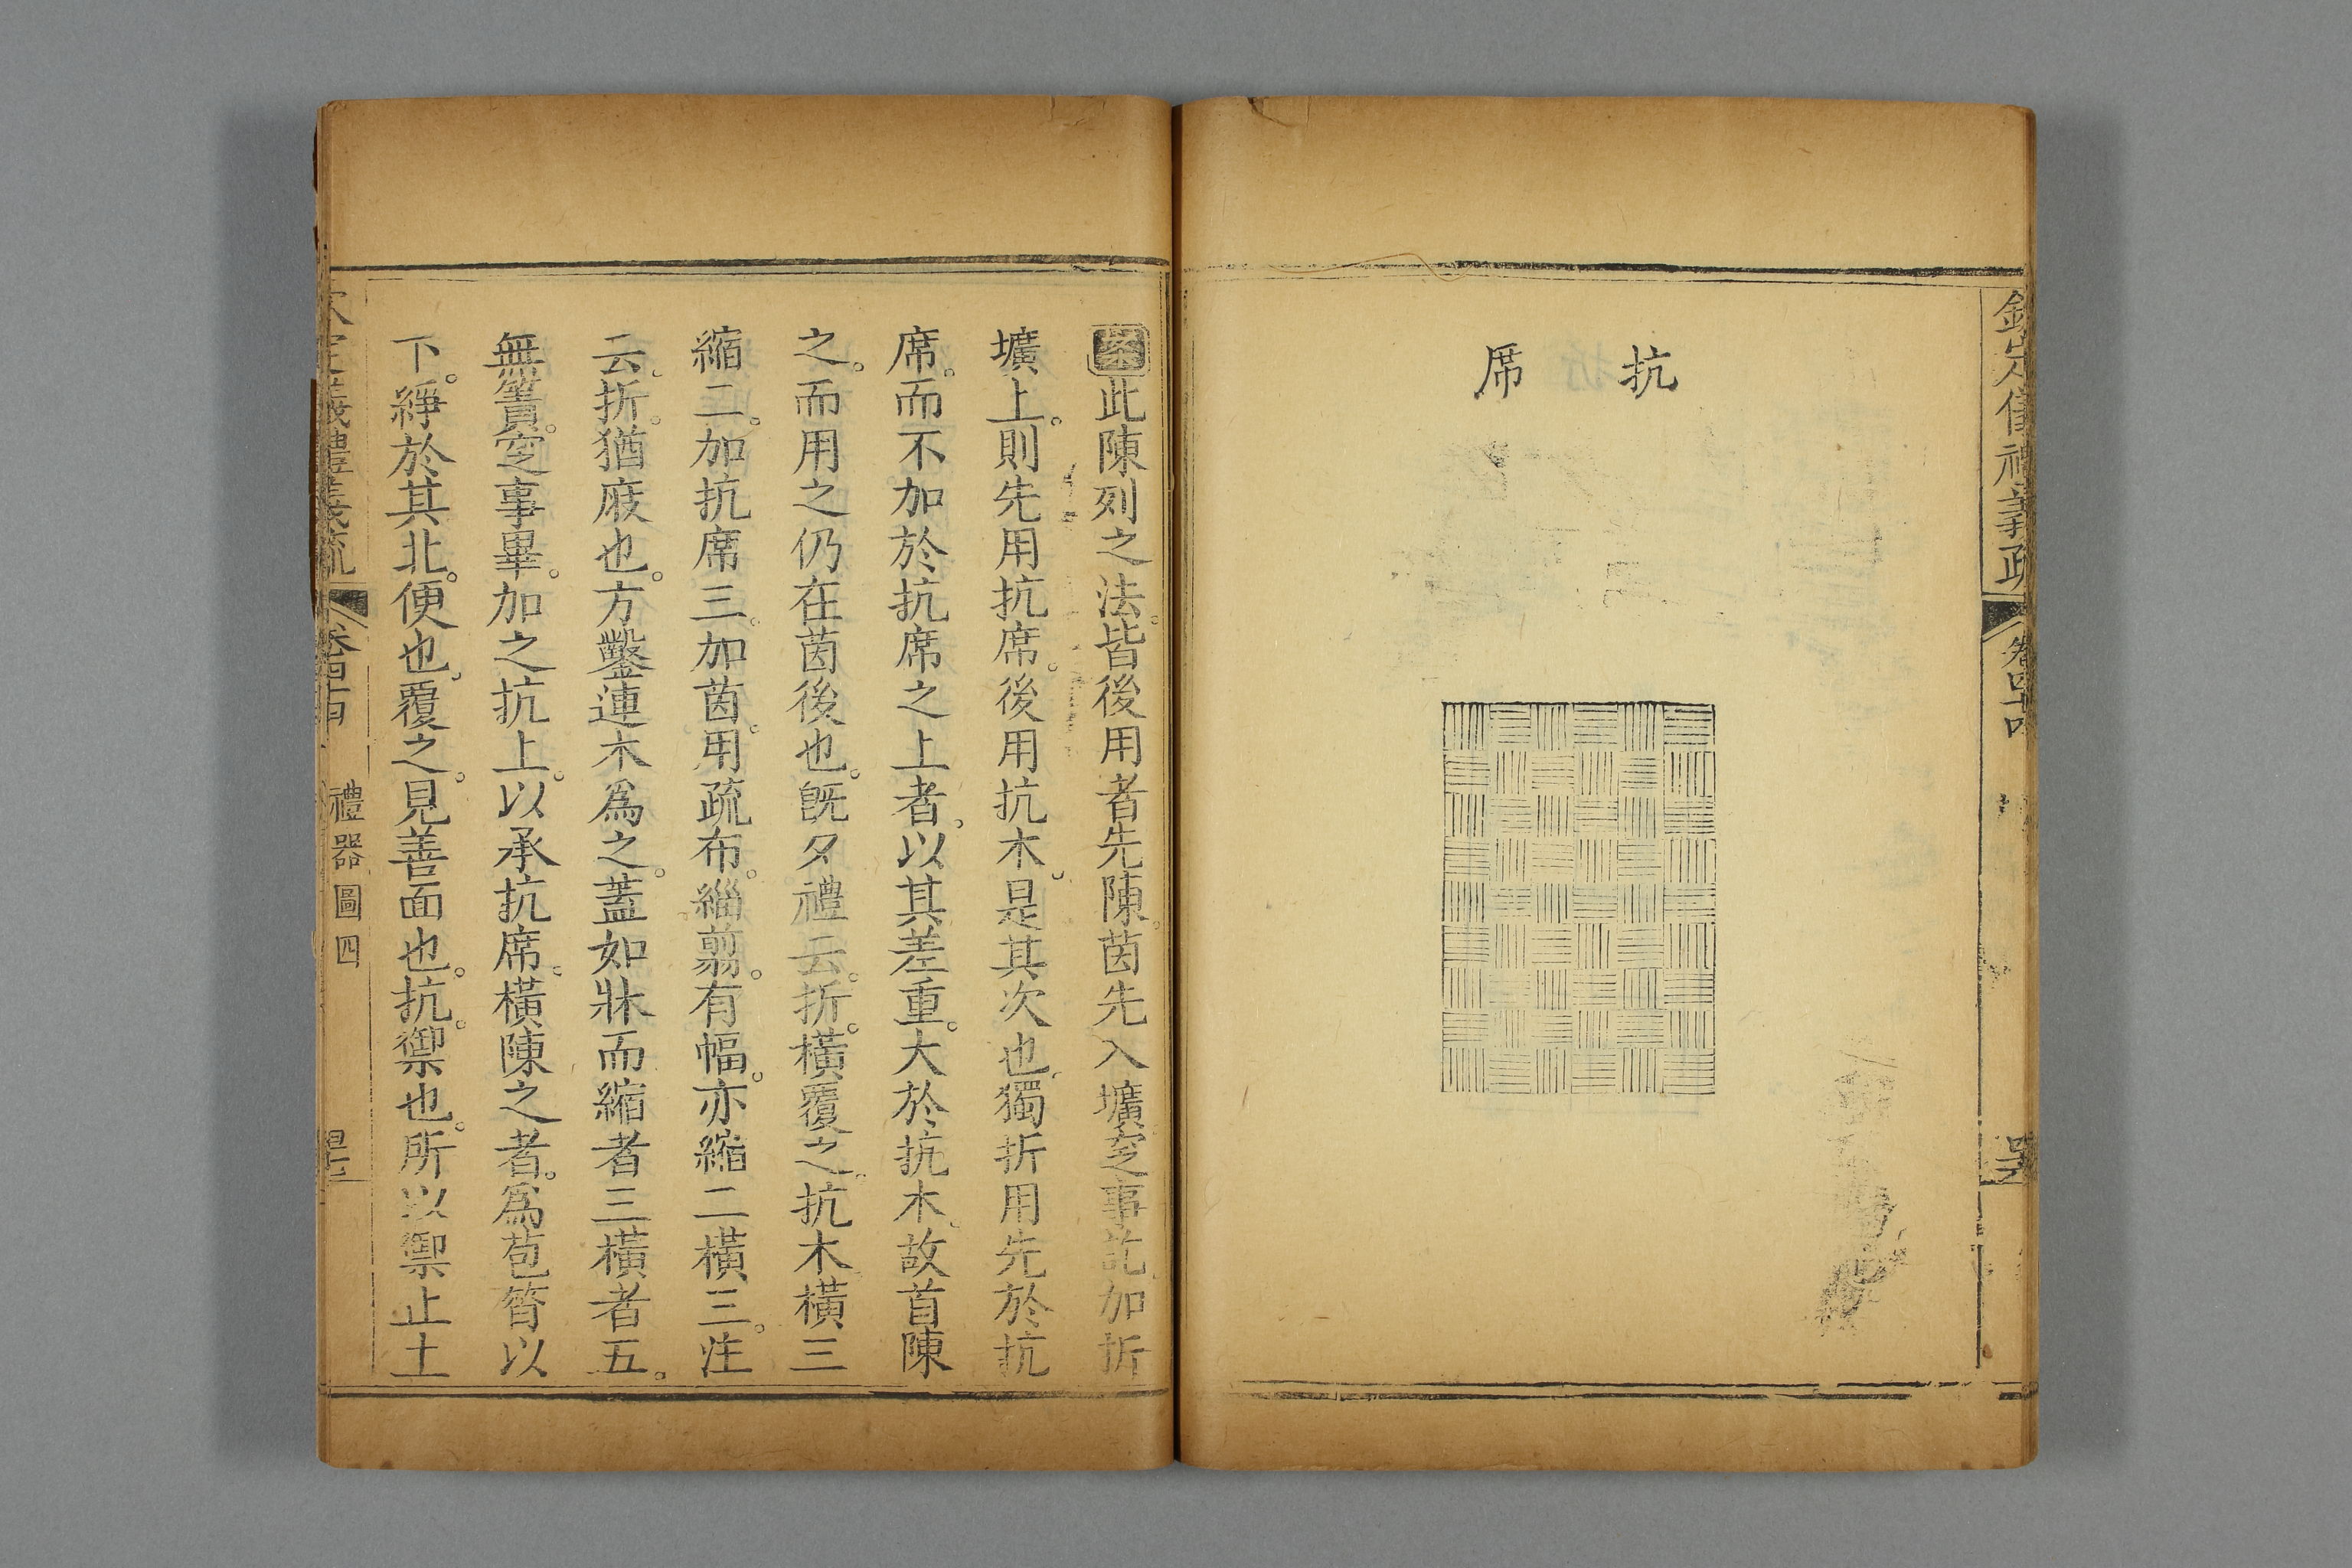 欽定儀禮義疏 卷四十四
抗席
案此陳列之法。皆後用者先陳。茵先入壙。窆事訖。加折
壙上。則先用抗席。後用抗木。是其次也。獨折用先於抗
席。而不加於抗席之上者。以其差重。大於抗木。故首陳
之。而用之仍在茵後也。旣夕禮云。折。橫覆之。抗木橫三
縮二。加抗席三。加茵。用疏布。緇翦。有幅。亦縮二橫三。注
云。折。猶庪也。方鑿連木爲之。蓋如牀而縮者三橫者五。
無簀。窆事畢。加之抗上。以承抗席。橫陳之者。爲苞筲以
下。綪於其北。便也。覆之。見善面也。抗。禦也。所以禦止土
欽定儀禮義疏 禮器圖四